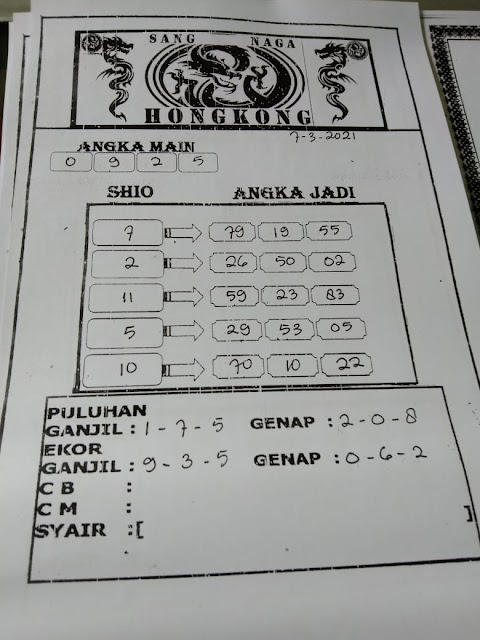 SANG NAGA
HONGKONG
7-3-2021
ANGKA MAIN
0 9 2 5
SHIO ANGKA JADI
7 79 19 55
2 26 50 02
11 59 23 83
5 29 53 05
10 70 10 22
PULUHAN
GANJIL : 1 - 7 - 5 GENAP : 2 - 0 - 8
EKOR
GANJIL : 9 - 3 - 5 GENAP : 0 - 6 - 2
C B :
C M :
SYAIR :[ ]